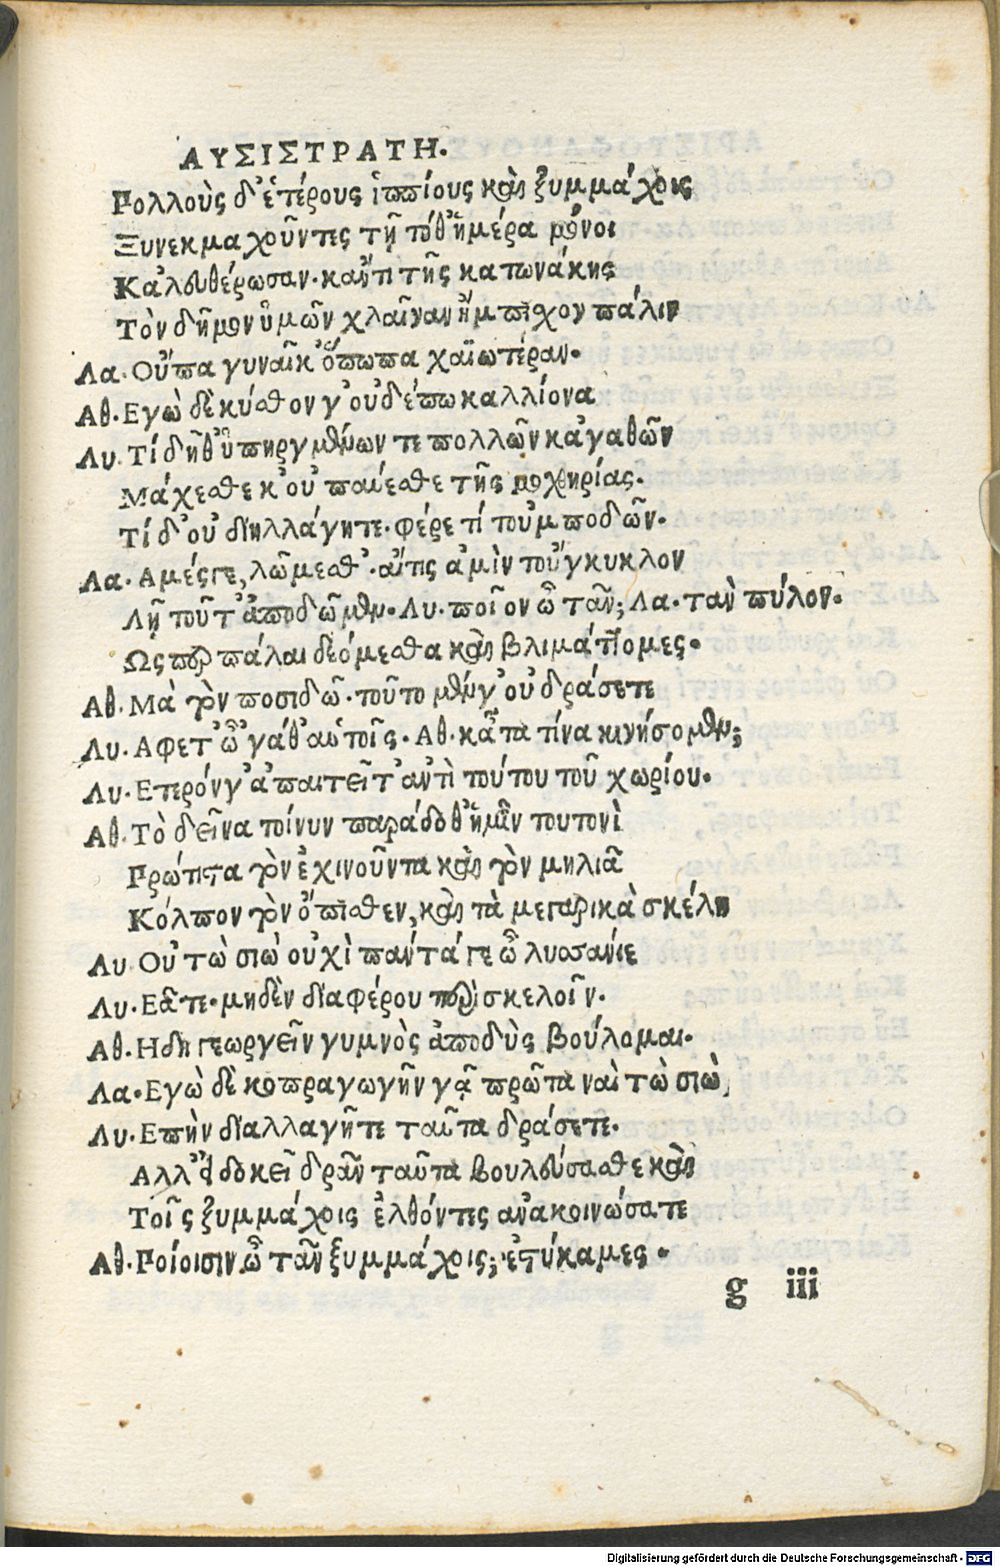 ΛΥΣΙΣΤΡΑΤΗ.
Ρολλοὺς δ' ἑτέρους ἱππίους καὶ ξυμμάχοις
Ξυνεκμαχοῦντες τῇ τόθ' ἡμέρα μόνοι
Κἀλευθέρωσαν. καὔτι τῆς κατωνάκης
Τὸν δῆμον ὑμῶν χλαῖναν ἤμπιχον πάλιν
Λα. Οὔπα γυναῖκ' ὄπωπα χαϊωτέραν.
Αθ. Εγὼ δὲ κύσθον γ' οὐδέπω καλλίονα
Λυ. Τί δῆθ' ὑπηργμένων τε πολλῶν κἀγαθῶν
Μάχεσθε κ' οὐ παύεσθε τῆς μοχθηρίας.
Τί δ' οὐ διηλλάγητε. φέρε τί τοὐμποδῶν.
Λα. Αμές γε, λῶμεσθ'. αἴτις ἀμὶν τοὔγκυκλον
Λῇ τοῦτ' ἀποδῶμεν. Λυ. ποῖον ὦ τᾶν; Λα. τὰν πύλον.
Ὡς περ πάλαι δεόμεσθα καὶ βλιμάττομες.
Αθ. Μὰ τὸν ποσιδῶ. τοῦτο μέν γ' οὐ δράσετε
Λυ. Αφετ' ὦ 'γάθ' αὐτοῖς. Αθ. κᾆτα τίνα κινήσομεν;
Λυ. Ετερόν γ' ἀπαιτεῖτ' ἀντὶ τούτου τοῦ χωρίου.
Αθ. Τὸ δεῖνα τοίνυν παράδοθ' ἡμῖν τουτονὶ
Ρρώτιστα τὸν ἐχινοῦντα καὶ τὸν μηλιᾶ
Κόλπον τὸν ὄπισθεν, καὶ τὰ μεγαρικὰ σκέλη
Λυ. Οὐ τὼ σιὼ οὐχὶ πάντά γε ὦ λυσσάνιε
Λυ. Εᾶτε. μηδὲν διαφέρου περὶ σκελοῖν.
Αθ. Ηδη γεωργεῖν γυμνὸς ἀποδὺς βούλομαι.
Λα. Εγὼ δὲ κοπραγωγῆν γᾳ πρῶτα ναὶ τὼ σιὼ,
Λυ. Επὴν διαλλαγῆτε ταῦτα δράσετε.
Αλλ' εἰ δοκεῖ δρᾶν ταῦτα βουλεύσασθε καὶ
Τοῖς ξυμμάχοις ἐλθόντες ἀνακοινώσατε
Αθ. Ροίοισιν ὦ τᾶν ξυμμάχοις; ἐστύκαμες.
g iii
Digitalisierung gefördert durch die Deutsche Forschungsgemeinschaft - DFG